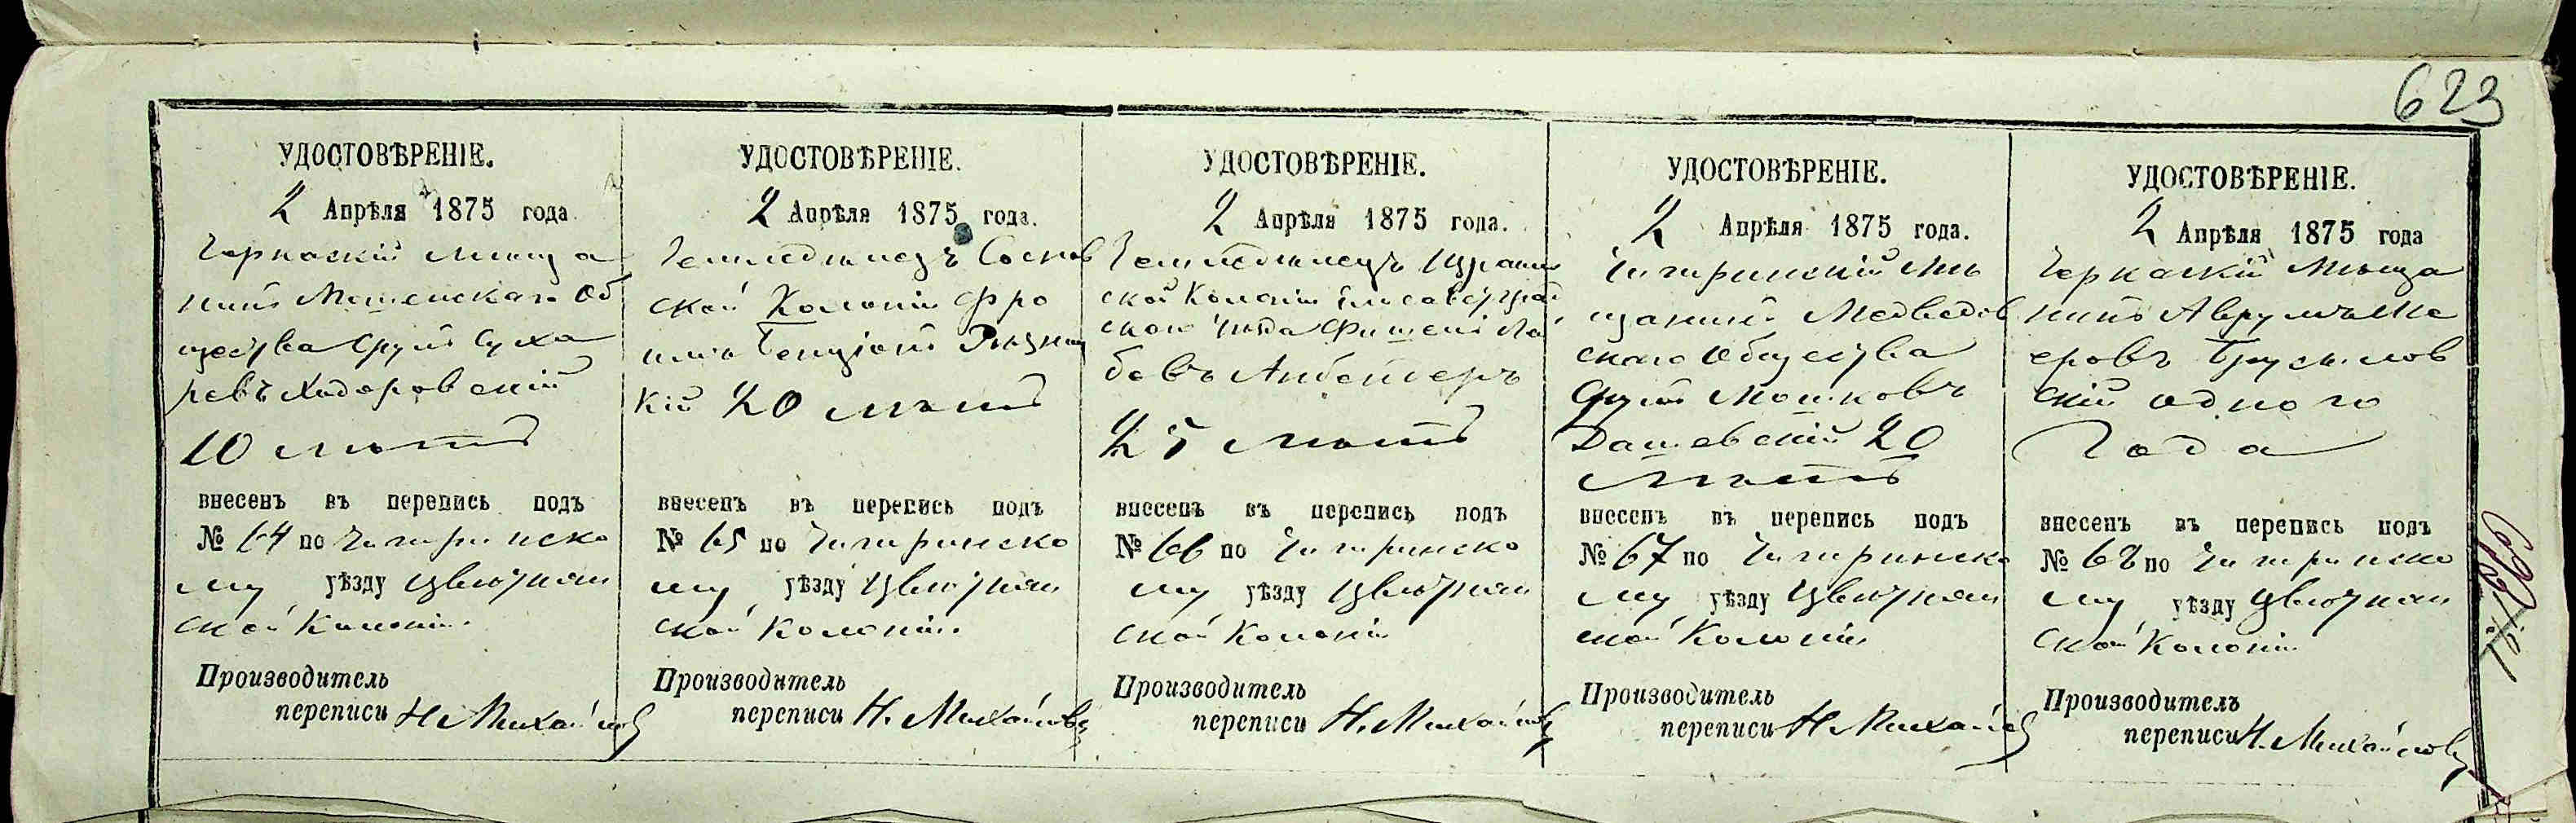 623
УДОСТОВѢРЕНІЕ.
2 Апрѣля 1875 года
Черкаскій меща
нинъ Мошенскаго Об
щества Сруль Суха
ревъ Ходоровскій
10 лѣтъ
внесенъ въ перепись подъ
№ 64 по Чигиринско
му уѣзду Цвѣтнян
ской Колоніи.
Производитель
переписи Н. Михайловъ
УДОСТОВѢРЕНІЕ.
2 Апрѣля 1875 года.
Земледѣлецъ Соснов
ской Колоніи Фро
имъ Бенціонъ
кій 20 лѣтъ
внесенъ въ перепись подъ
№ 65 по Чигиринско
му уѣзду Цвѣтнян
ской Колоніи.
Производитель
переписи Н. Михайловъ
УДОСТОВѢРЕНІЕ.
2 Апрѣля 1875 года.
Земледѣлецъ Израилев
ской Колоніи Елисаветград
скаго уѣзда Фишель Лей
бовъ
25 лѣтъ
внесенъ въ перепись подъ
№ 66 по Чигиринско
му уѣзду Цвѣтнян
ской Колоніи
Производитель
переписи Н. Михайловъ
УДОСТОВѢРЕНІЕ.
2 Апрѣля 1875 года.
Чигиринскій мѣ
щанинъ Медведов
скаго Общества
Сруль Мошковъ
Дашевскій 20
лѣтъ
внесенъ въ перепись подъ
№ 67 по Чигиринско
му уѣзду Цвѣтнян
ской Колоніи
Производитель
переписи Н. Михайловъ
УДОСТОВѢРЕНІЕ.
2 Апрѣля 1875 года
Черкаскій мѣща
нинъ Аврумъ Ме
еровъ Брусилов
скій одного
года
внесенъ въ перепись подъ
№ 68 по Чигиринско
му уѣзду Цвѣтнян
ской Колоніи
Производитель
переписи Н. Михайловъ